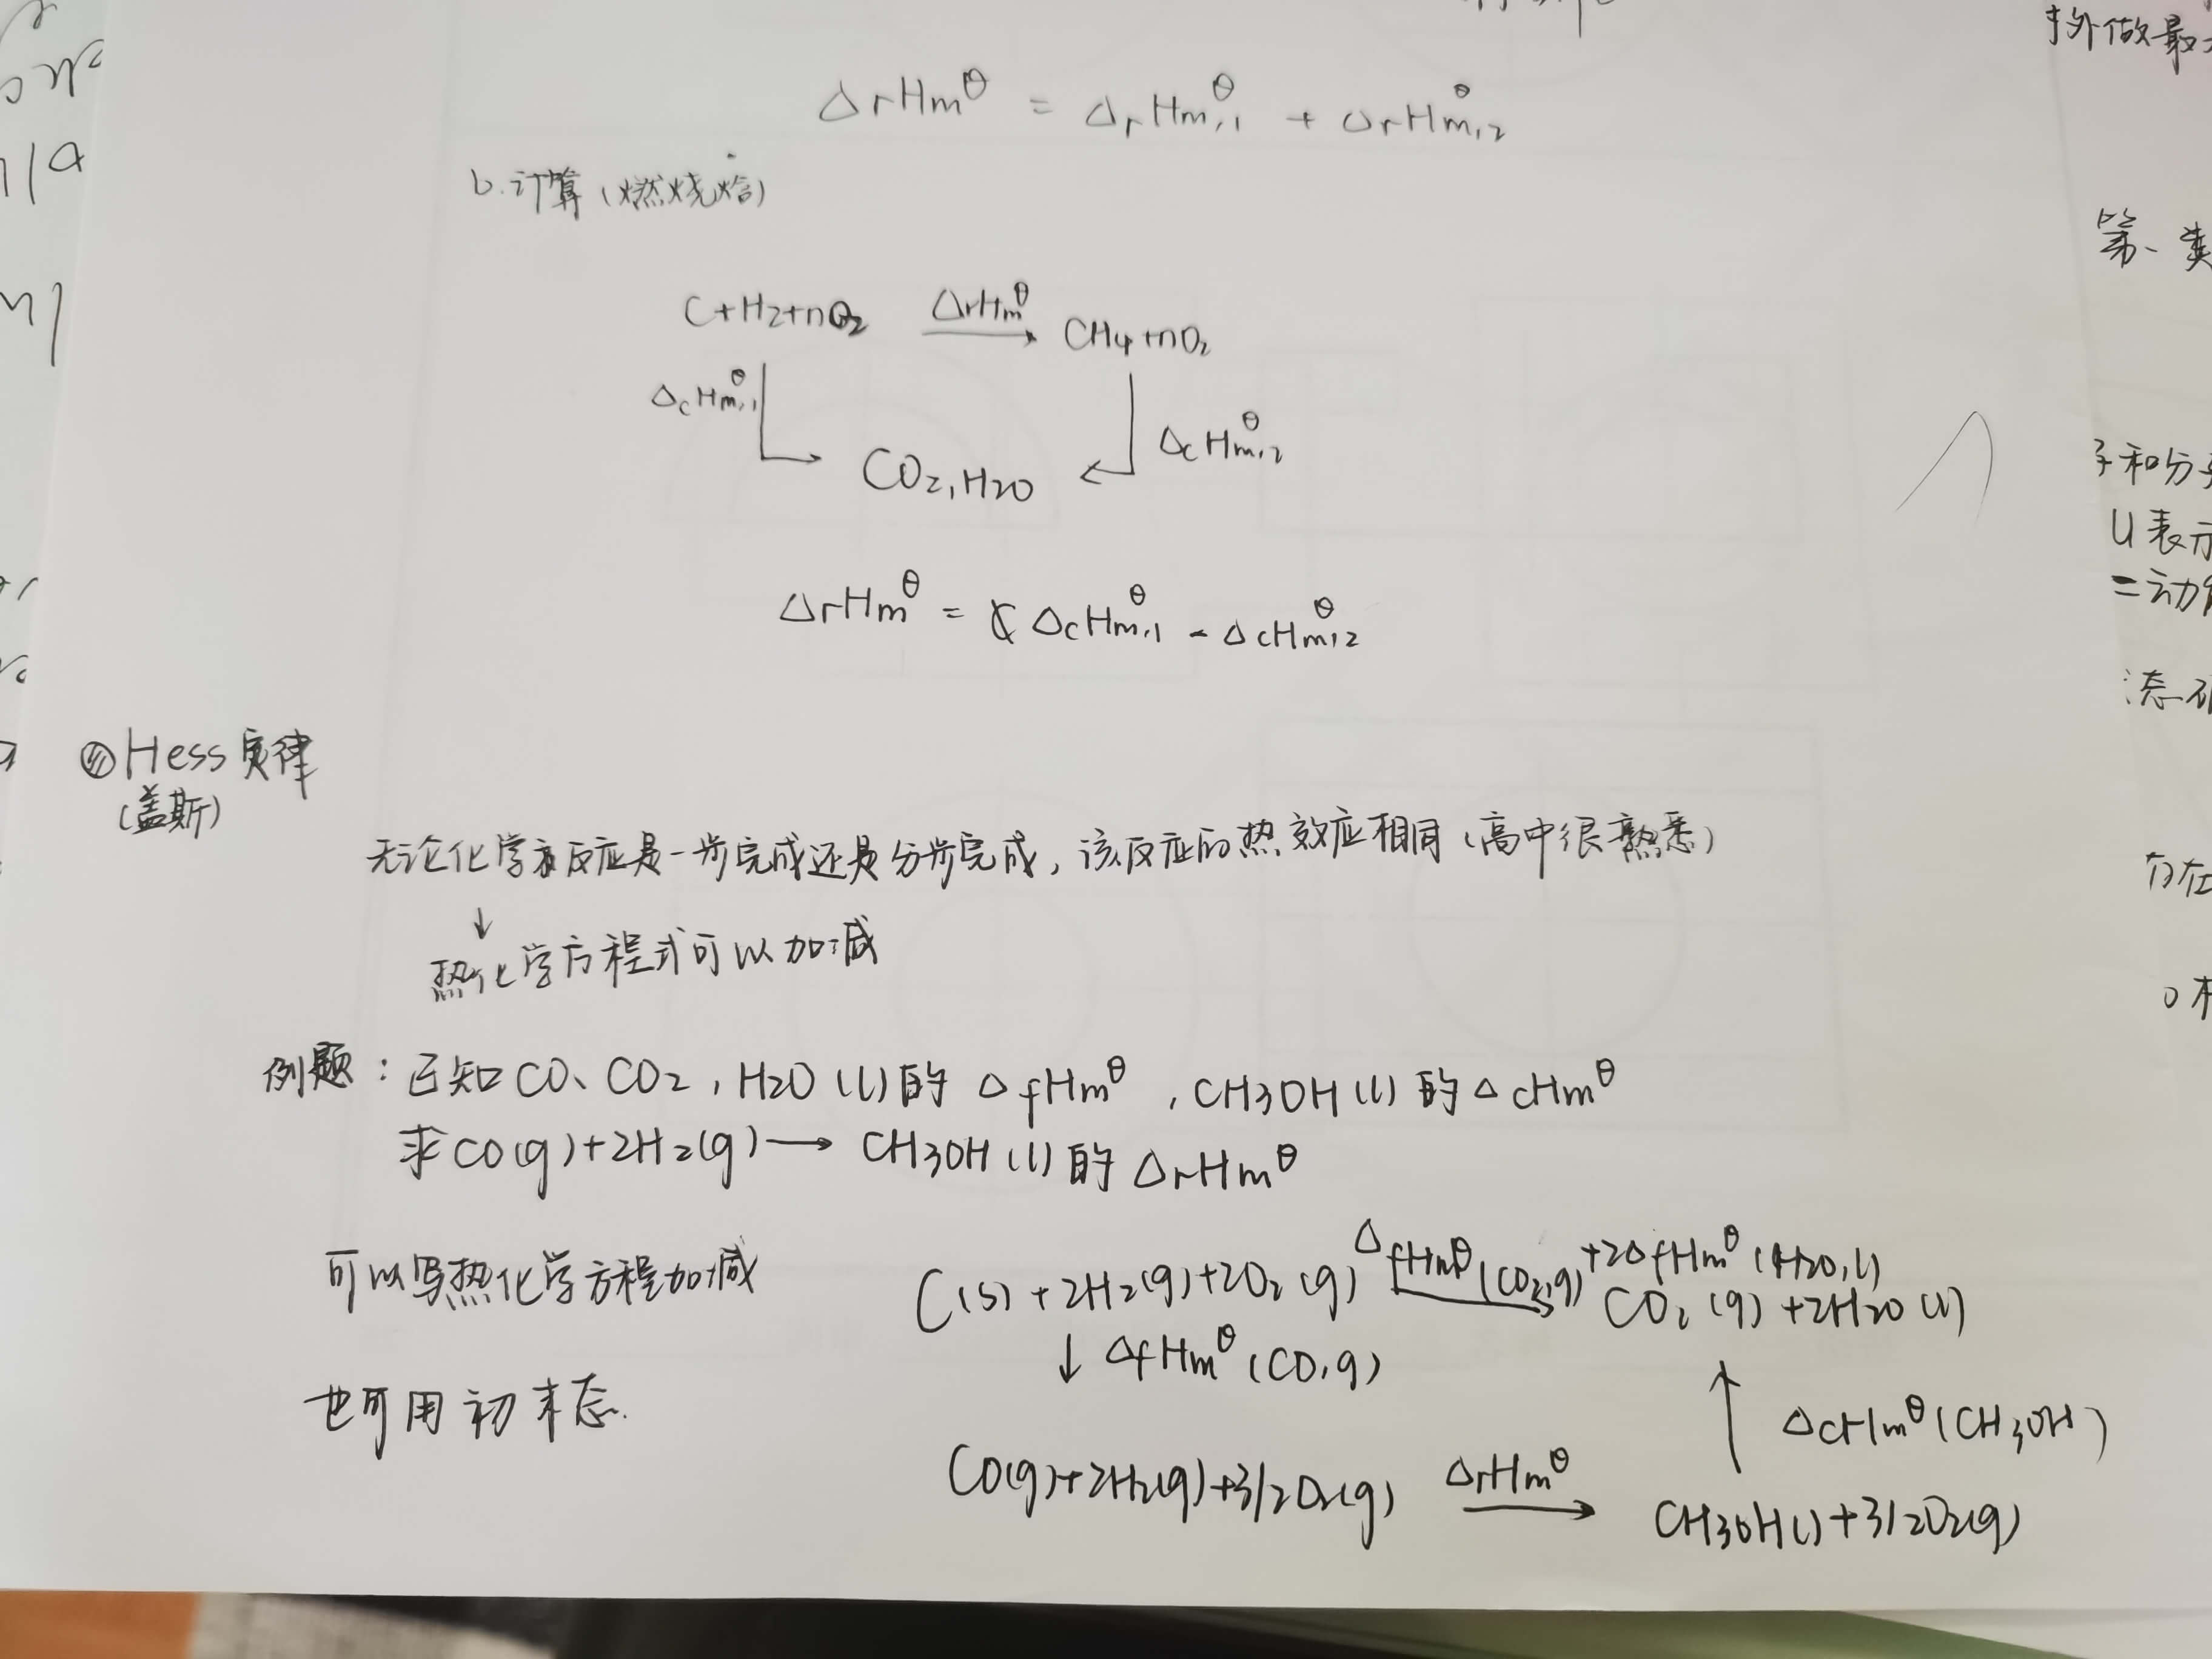 ΔrHm^θ = ΔrHm,1^θ + ΔrHm,2^θ
b.计算(燃烧焓)
C+H2+nO2 ΔrHm^θ → CH4+nO2
ΔcHm,1^θ
ΔcHm,2^θ
CO2,H2O
ΔrHm^θ = ΔcHm,1^θ - ΔcHm,2^θ
Hess定律
(盖斯)
无论化学反应是一步完成还是分步完成,该反应的热效应相同(高中很熟悉)
↓
热化学方程式可以加减
例题:已知CO、CO2,H2O(l)的 ΔfHm^θ ,CH3OH(l)的ΔcHm^θ
求CO(g)+2H2(g)→ CH3OH(l)的ΔrHm^θ
可以写热化学方程加减
ΔfHm^θ(CO2,g)+2ΔfHm^θ(H2O,l)
C(s)+2H2(g)+2O2(g) → CO2(g)+2H2O(l)
↓ ΔfHm^θ(CO,g)
也可用初末态.
↑ ΔcHm^θ(CH3OH)
CO(g)+2H2(g)+3/2O2(g) ΔrHm^θ → CH3OH(l)+3/2O2(g)
扌外做最
第一类
和分子
U表示
=动
态
存在